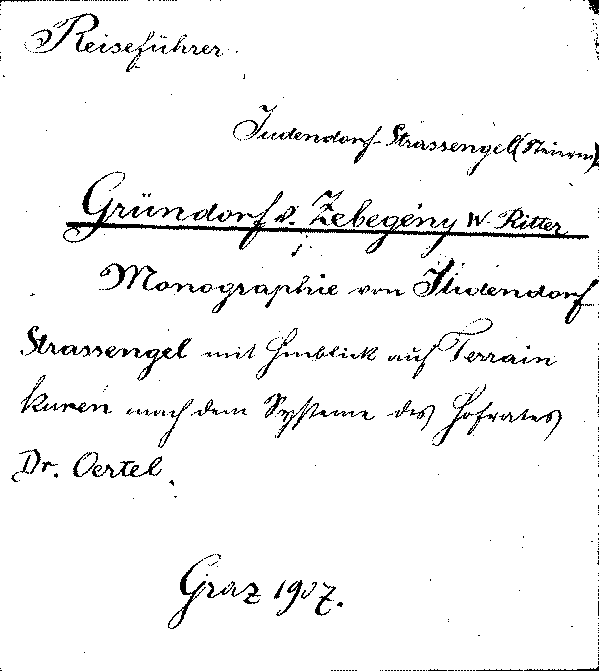 Reiseführer.
Judendorf-Strassengel (Steierm)
Gründorf v. Zebegény W. Ritter
Monographie von Judendorf
Strassengel mit Hinblick auf Terrain
kuren nach dem Systeme des Hofrates
Dr. Oertel.
Graz 1907.